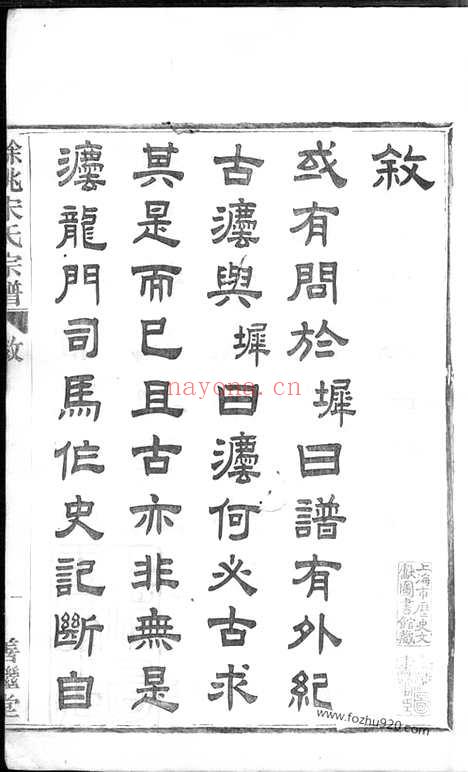 敘
或有問於墀曰譜有外紀
古灋與墀曰灋何必古求
其是而已且古亦非無是
灋龍門司馬作史記斷自
餘姚宋氏宗譜
敘
一
善繼堂
上海市歷史文
獻圖書館藏
nayona.cn
www.fozhu920.com